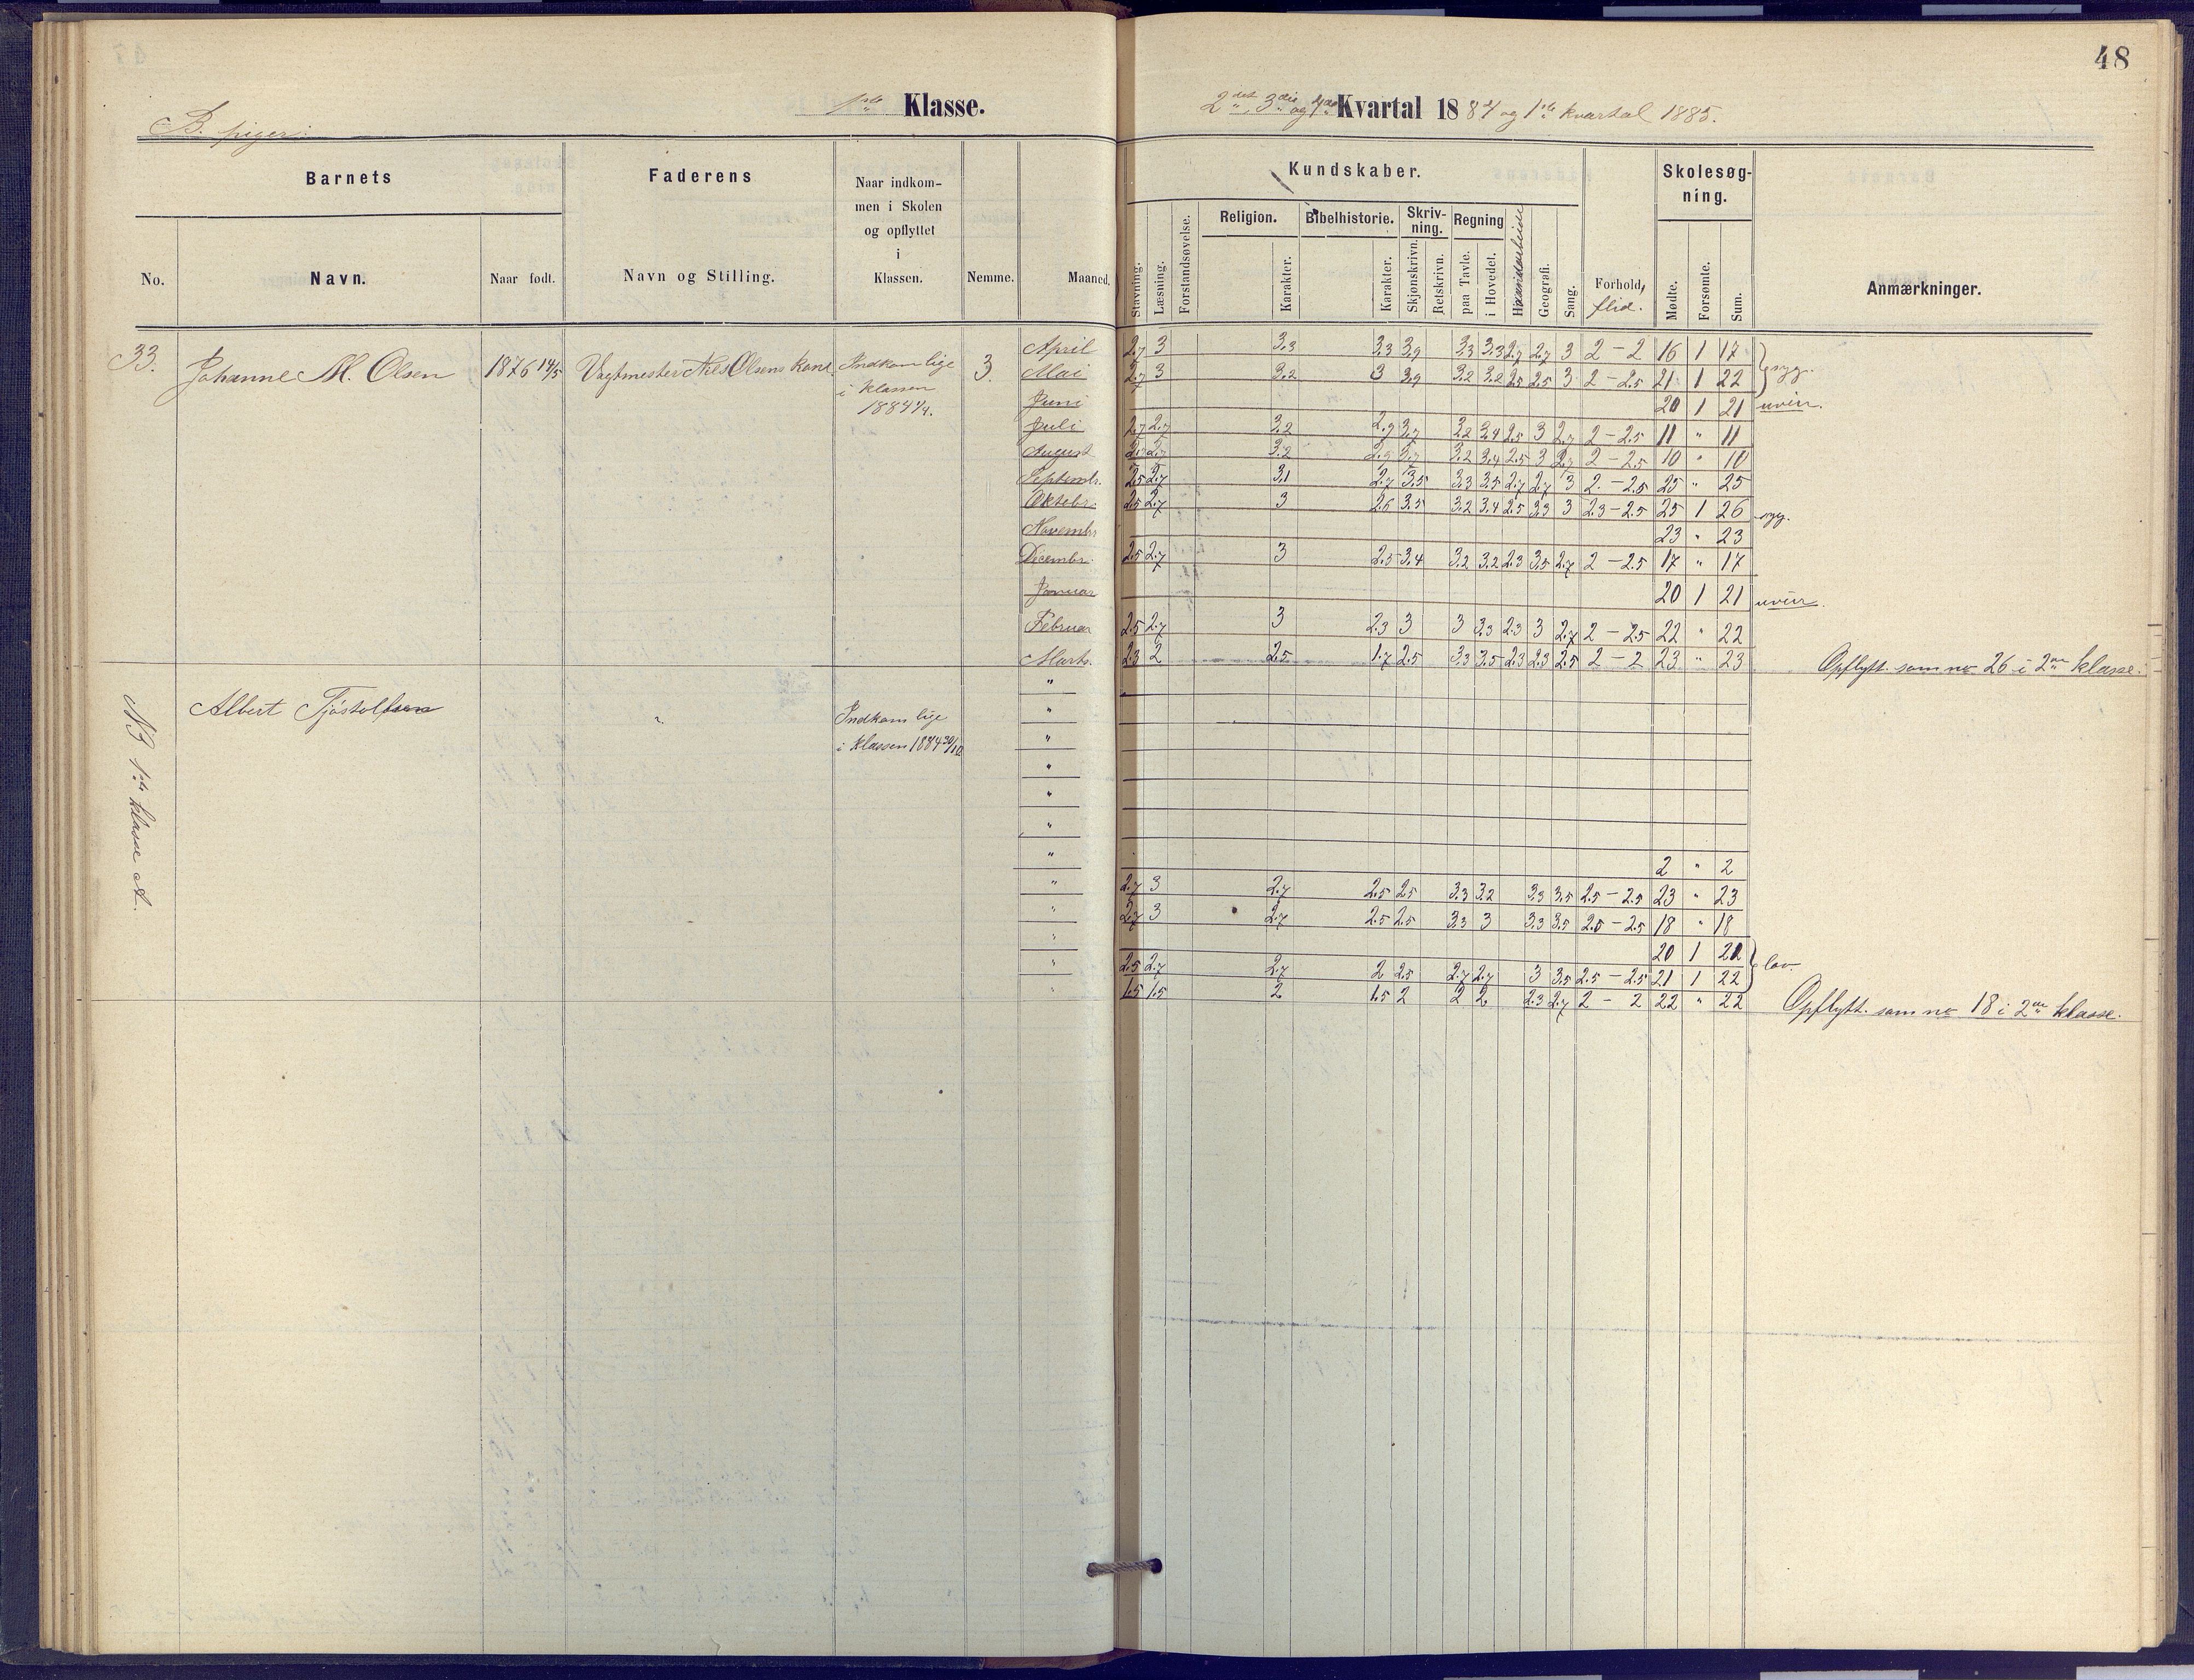 48
1ste Klasse.
2det, 3die og 4de Kvartal 1884 og 1ste kvartal 1885.
B. piger.
Barnets
Faderens
Naar indkom-
men i Skolen
og opflyttet
i
Klassen.
Kundskaber.
Skolesøg-
ning.
Religion. Bibelhistorie. Skriv-
ning. Regning
No. Navn. Naar født. Navn og Stilling. Nemme. Maaned.
Stavning. Læsning. Forstandsøvelse. Karakter. Karakter. Skjønskrivn. Retskrivn. paa Tavle. i Hovedet. Haandarbeide Geografi. Sang. Forhold, flid. Mødte. Forsømte. Sum. Anmærkninger.
33. Johanne M. Olsen 1876 14/5 Vagtmester Nils Olsens kone Indkom lige 3.
i klassen
1884 1/4.
April 2.7 3 3.3 3.3 3.9 3.3 3.3 2.7 2.7 3 2 – 2 16 1 17 } syg.
Mai 2.7 3 3.2 3 3.9 3.2 3.2 2.5 2.5 3 2 – 2.5 21 1 22
Juni 20 1 21 uveir.
Juli 2.7 2.7 3.2 2.9 3.7 3.2 3.4 2.5 3 2.7 2 – 2.5 11 " 11
August 2.7 2.7 3.2 2.9 3.7 3.2 3.4 2.5 3 2.7 2 – 2.5 10 " 10
Septembr. 2.5 2.7 3.1 2.7 3.5 3.3 3.5 2.7 2.7 3 2. – 2.5 25 " 25
Oktobr. 2.5 2.7 3 2.6 3.5 3.2 3.4 2.5 3.3 3 2.3 – 2.5 25 1 26 syg.
Novembr 23 " 23
Decembr. 2.5 2.7 3 2.5 3.4 3.2 3.2 2.3 3.5 2.7 2 – 2.5 17 " 17
Januar 20 1 21 uveir.
Februar 2.5 2.7 3 2.3 3 3 3.3 2.3 3 2.7 2 – 2.5 22 " 22
Marts. 2.3 2 2.5 1.7 2.5 3.3 3.5 2.3 2.3 2.5 2 – 2 23 " 23 Opflytt. som no 26 i 2den klasse.
NB 1ste klasse A.
Albert Tjöstolfsen " Indkom lige
i klassen 1884 30/10
"
"
"
"
"
"
" 2 " 2
" 2.7 3 2.7 2.5 2.5 3.3 3.2 3.3 3.5 2.5 – 2.5 23 " 23
" 2.7 3 2.7 2.5 2.5 3.3 3 3.3 3.5 2.5 – 2.5 18 " 18
" 20 1 21 } lov.
" 2.5 2.7 2.7 2 2.5 2.7 2.7 3 3.5 2.5 – 2.5 21 1 22
" 1.5 1.5 2 1.5 2 2 2 2.3 2.7 2 – 2 22 " 22 Opflytt. som no 18 i 2den klasse.